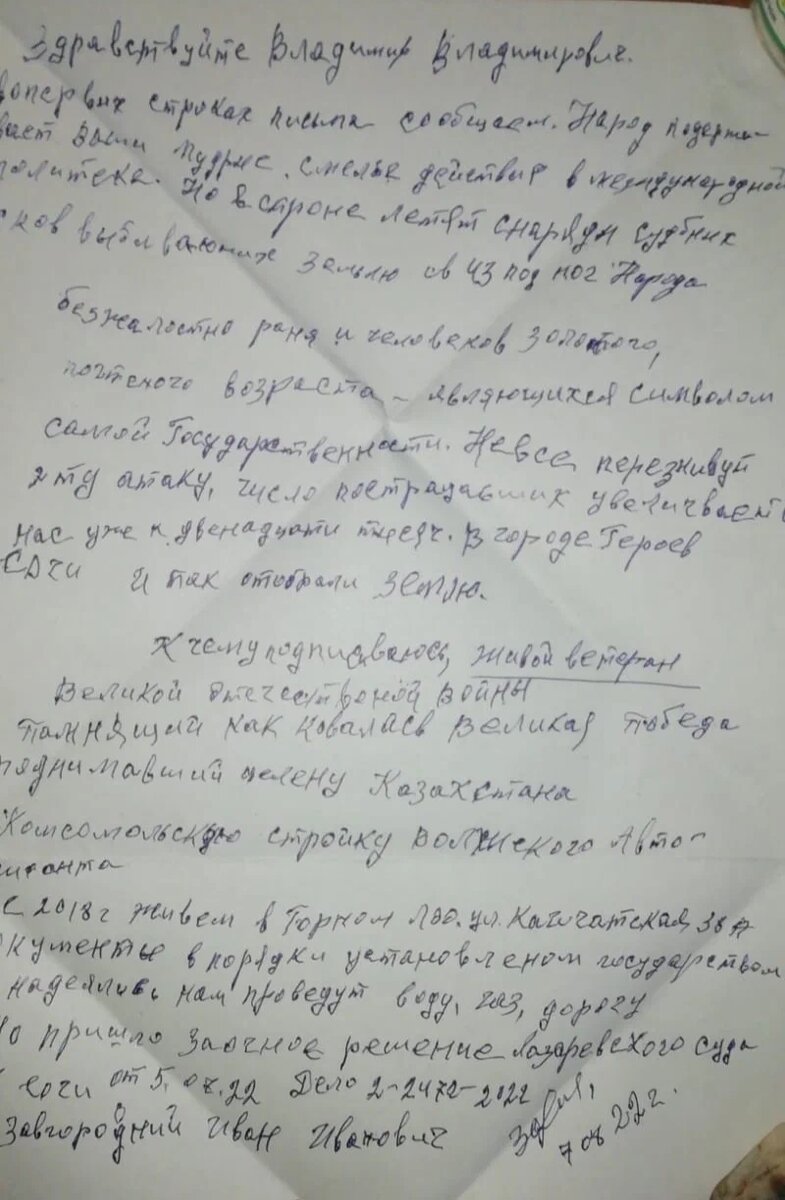 Здравствуйте Владимир Владимирович.
вопервих строках письма сообщаем. Народ подерти-
вает ваши мудрые, смелые действия в международной
политека. Но в строне летят снаряди судбних
сков выбивающих землю св из под ног Народа
безжалостно раня и человеков Золотого,
почтеного возраста - являющихся символом
самой Государственности. Невсе переживут
эту атаку, число пострадавших увеличвает
нас уже к двенадцати тисяч. В городе Героев
СОЧИ и так отобрали землю.
К чему подписиваюсь, живой ветеран
Великой отечественой войны
Памнящий как ковалась Великая победа
подни мавший целену Казахстана
Комсомольскую стройку Волжского Авто-
гиганта
С 2018 г живем в Горном Лоо. ул. Камчатская 38 А
кументы в порядки установленом государством
надеялись нам проведут воду, газ, дорогу
о пришло Заочное решение Лазаревского суда
Сочи от 5.07.22 Дело 2-2472-2022
Завгородний Иван Иванович
7 08 22 г.